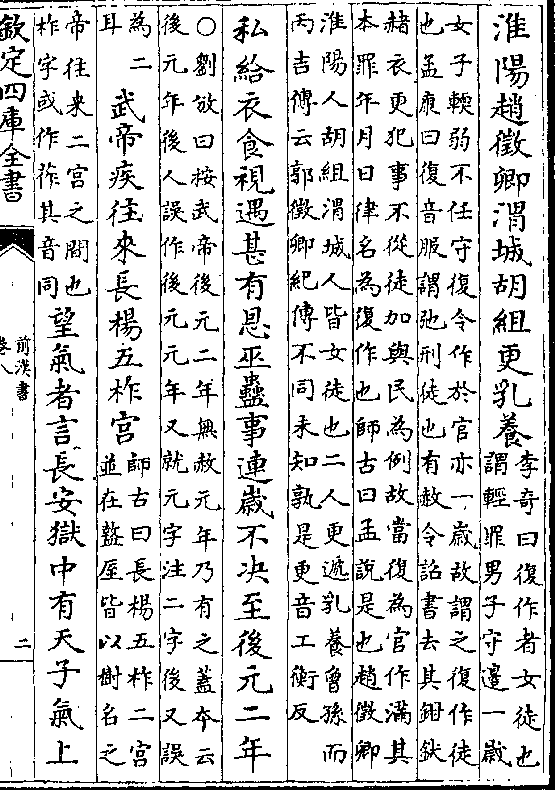 淮陽趙徵卿渭城胡組更乳養李奇曰復作者女徒也
謂輕罪男子守邊一歲
女子輭弱不任守復令作於官亦一歲故謂之復作徒
也孟康曰復音服謂弛刑徒也有赦令詔書去其鉗釱
赭衣更犯事不從徒加與民為例故當復為官作滿其
本罪年月日律名為復作也師古曰孟說是也趙徵卿
淮陽人胡組渭城人皆女徒也二人更遞乳養曾孫而
丙吉傳云郭徵卿紀傳不同未知孰是更音工衡反
私給衣食視遇甚有恩巫蠱事連歲不決至後元二年
○劉攽曰按武帝後元二年無赦元年乃有之蓋本云
後元年後人誤作後元元年又就元字注二字後又誤
為二
耳武帝疾往來長楊五柞宮師古曰長楊五柞二宮
並在盩厔皆以樹名之
帝往來二宮之間也
柞字或作䇥其音同望氣者言長安獄中有天子氣上
欽定四庫全書
前漢書
卷八
二